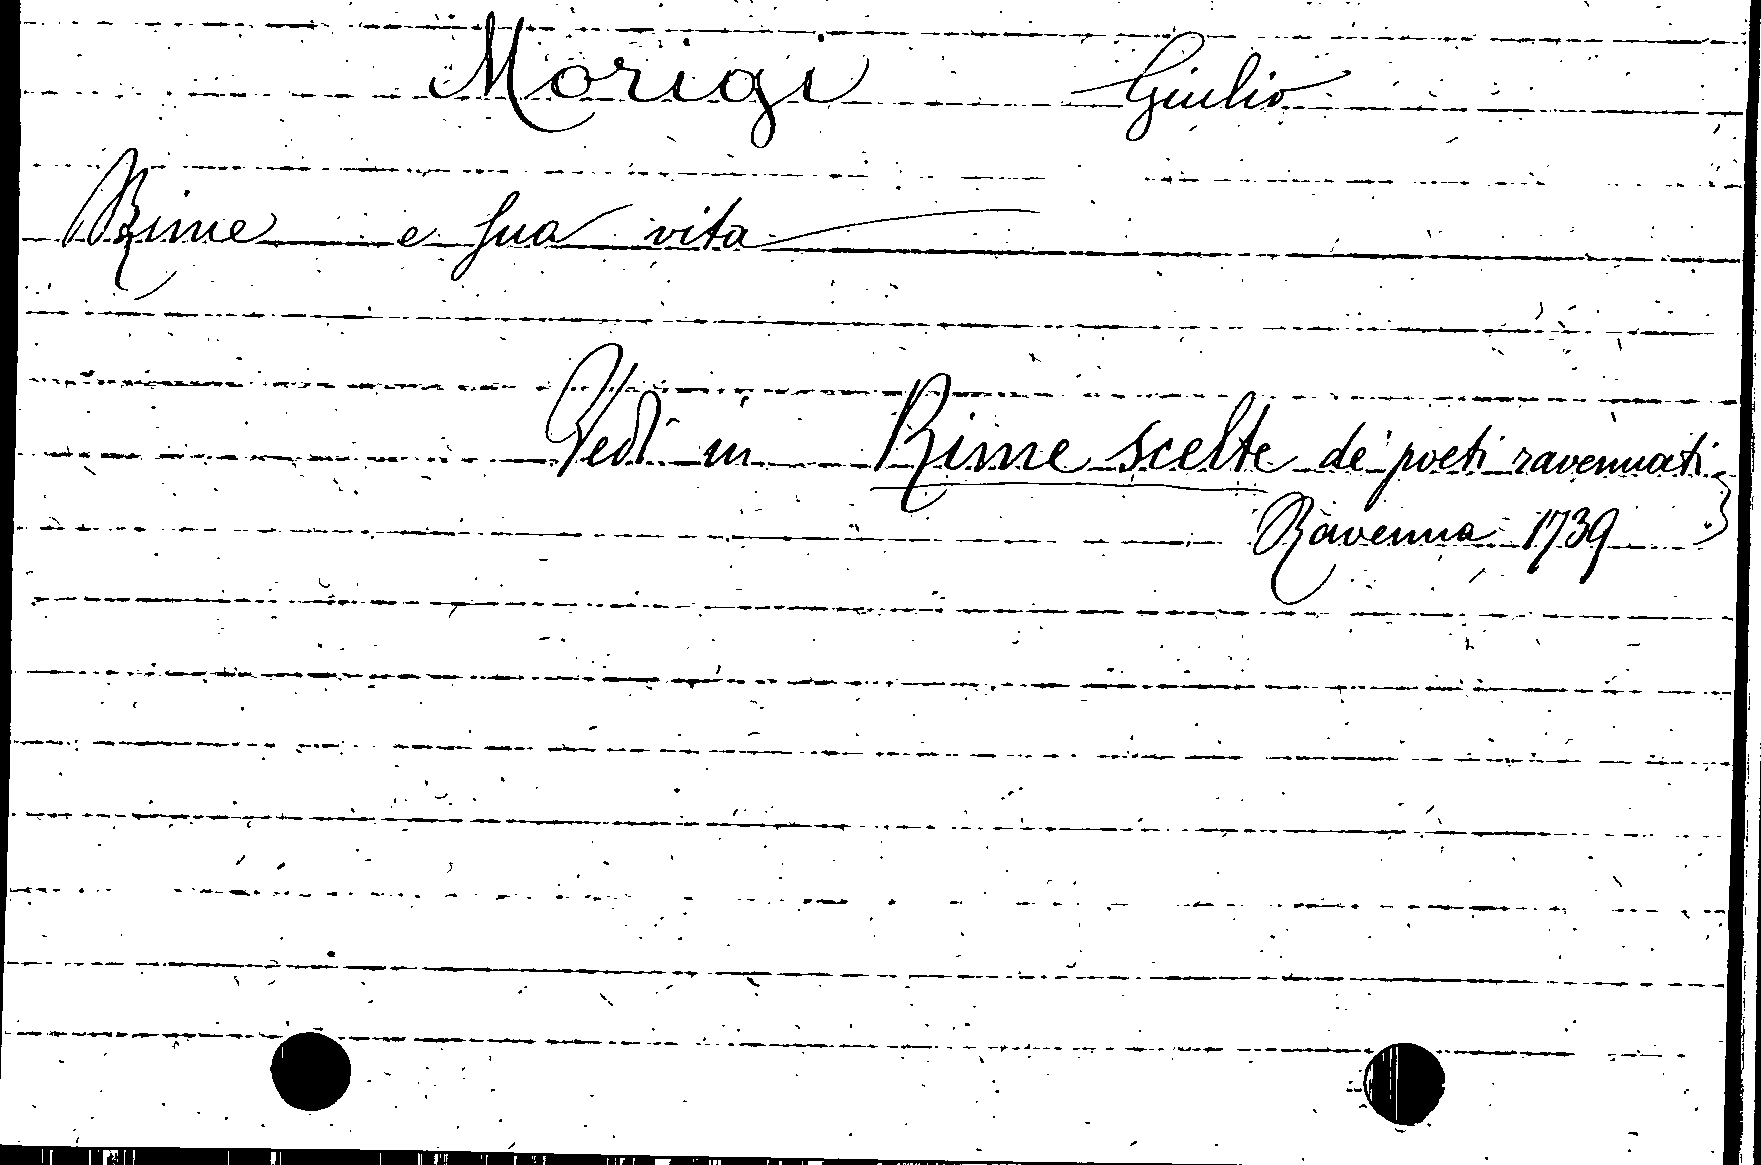 Morigi Giulio
Rime e sua vita
Vedi in Rime scelte de' poeti ravennati;
Ravenna 1739